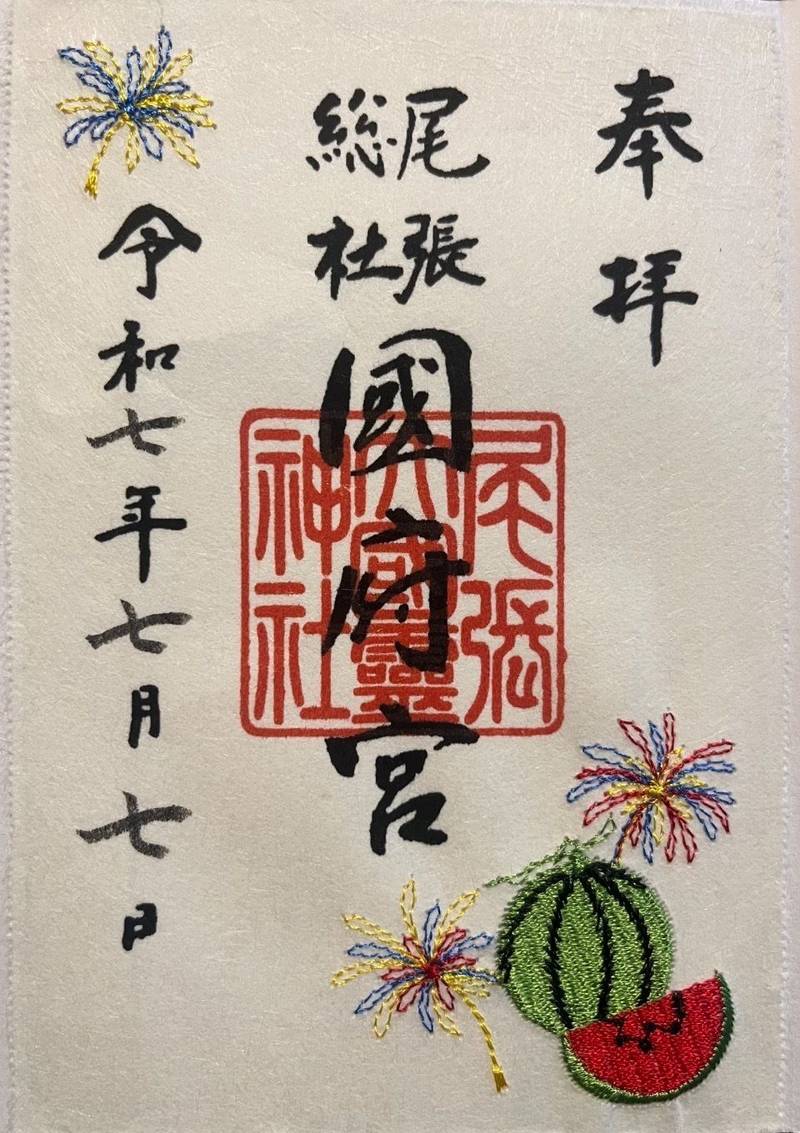 奉拝
尾張
総社
國府宮
尾張
大國霊
神社
令和七年七月七日